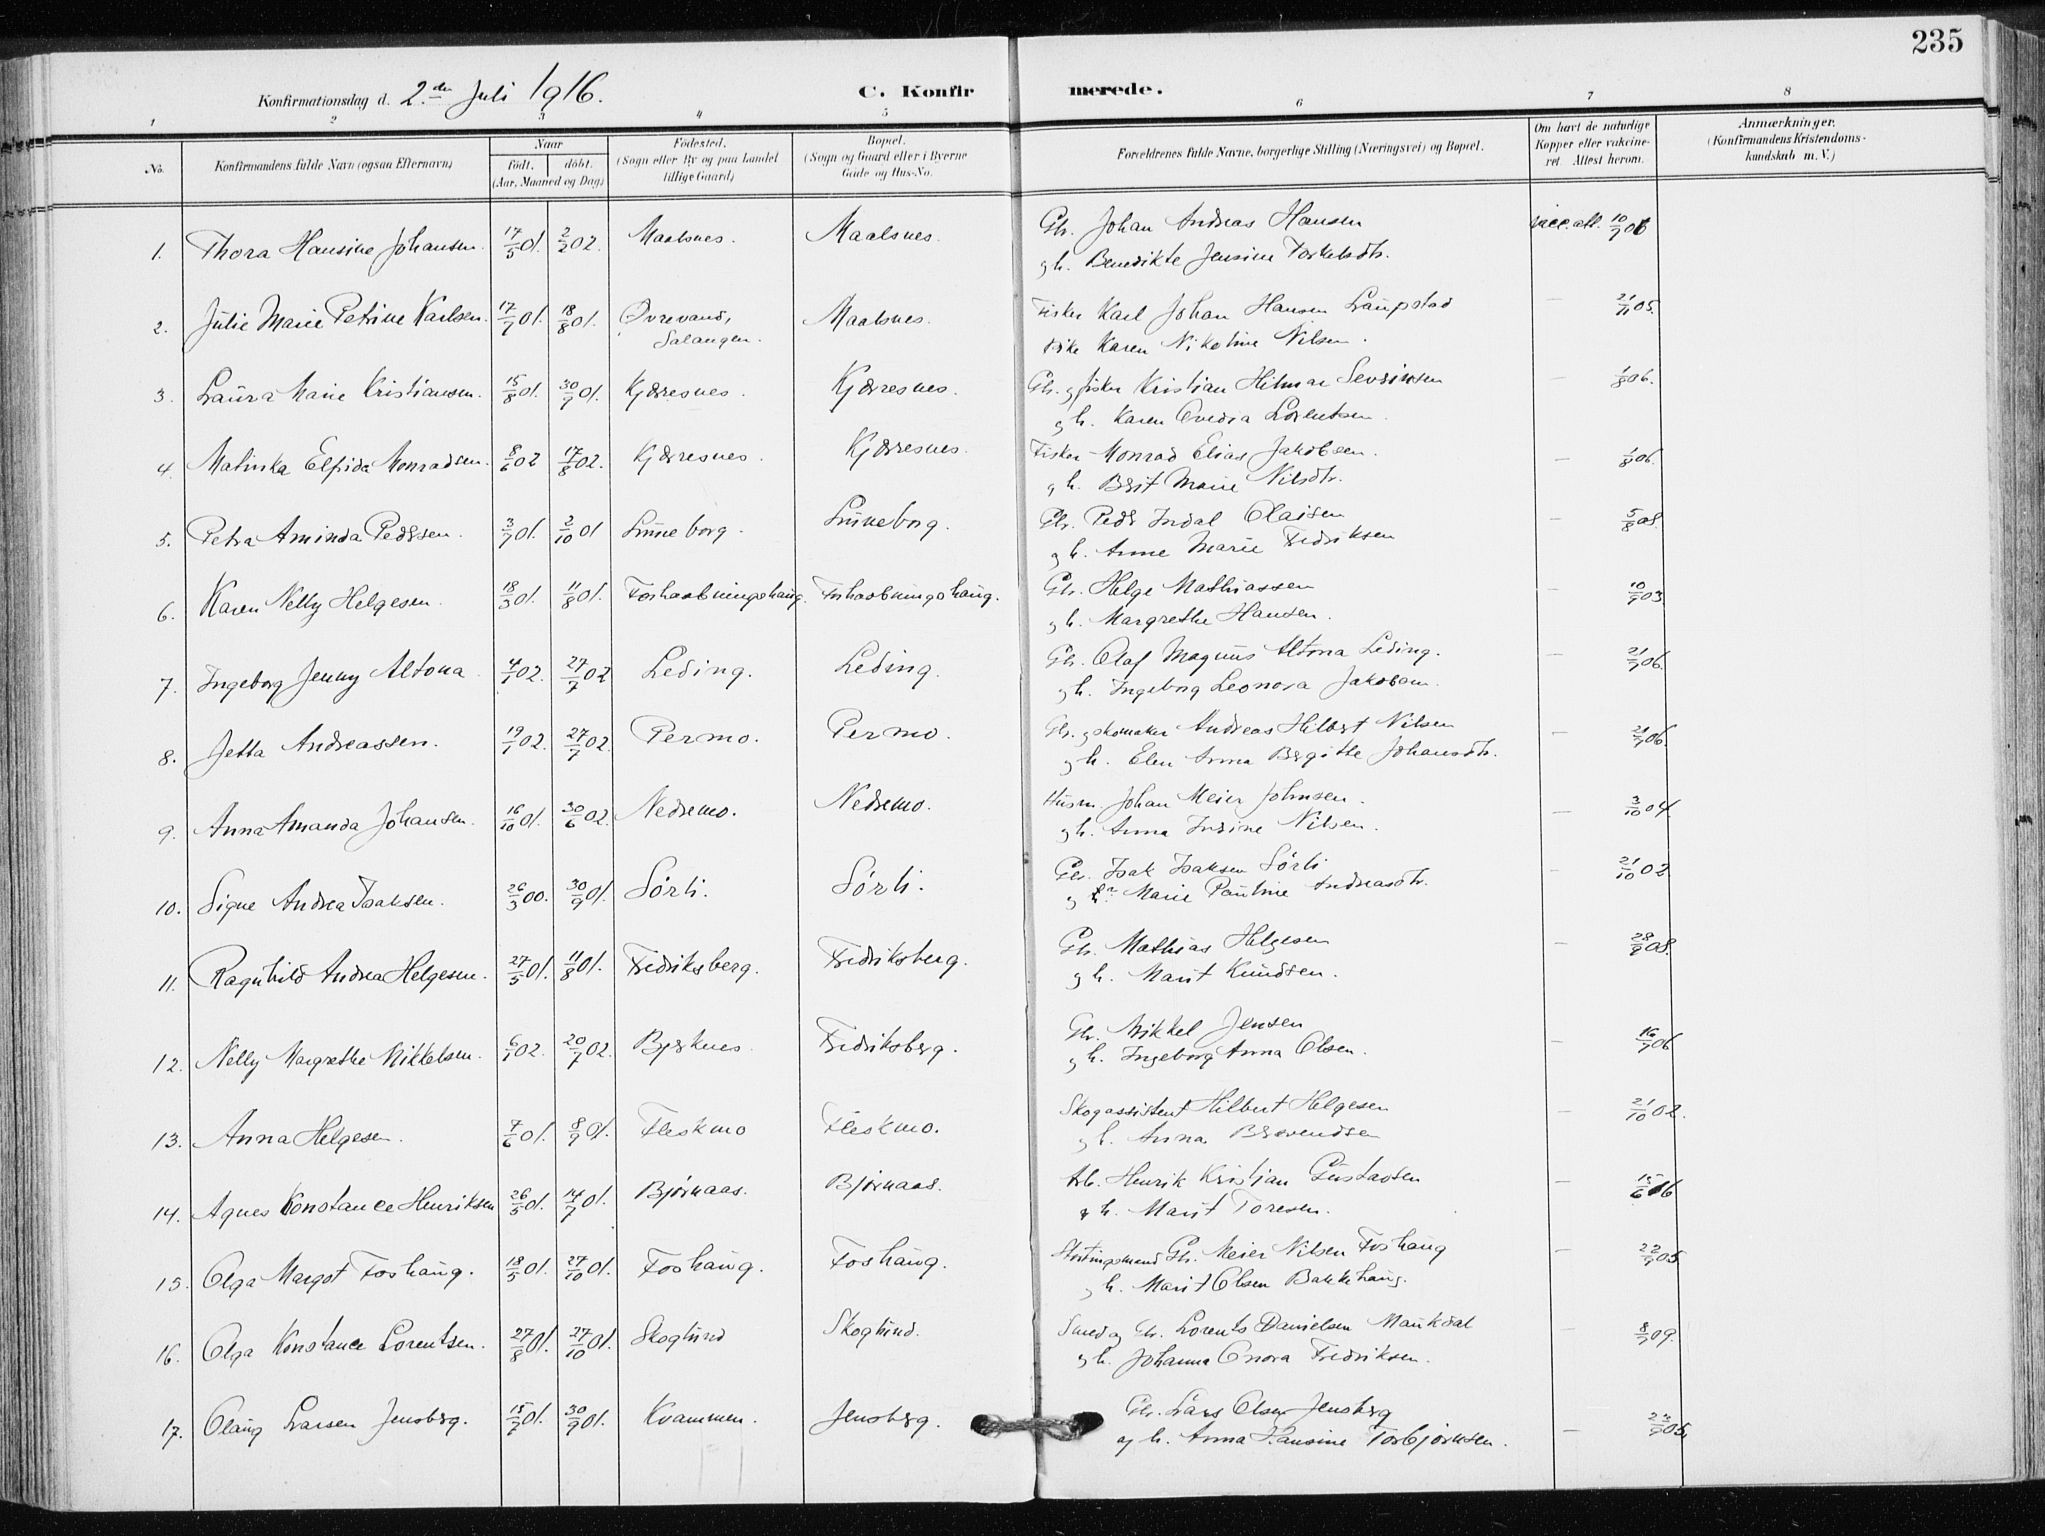 235
Konfirmationsdag d. 2.den Juli 1916. C. Konfirmerede.
1 2 3 4 5 6 7 8
No. Konfirmandens fulde Navn (ogsaa Efternavn) Naar født. døbt. (Aar, Maaned og Dag) Fødested. (Sogn eller By og paa Landet tillige Gaard) Bopæl. (Sogn og Gaard eller i Byerne Gade og Hus-No. Forældrenes fulde Navne, borgerlige Stilling (Næringsvei) og Bopæl. Om havt de naturlige Kopper eller vakcineret. Attest herom. Anmærkninger. (Konfirmandens Kristendomskundskab m. V.)
1. Thora Hansine Johansen. 17/5 01. 2/2 02. Maalsnes. Maalsnes. Gbr. Johan Andreas Hansen vacc. att. 10/7 06
og h. Benedikte Jensine Torkelsdtr.
2. Julie Marie Petrine Karlsen. 17/7 01. 18/8 01. Øvrevand, Salangen. Maalsnes. Fisker Karl Johan Hansen Laupstad — 21/11 05.
Karen Nikoline Nilsen.
3. Laura Marie Kristiansen. 15/8 01. 30/9 01. Kjærresnes. Kjærresnes. Gbr. og fisker Kristian Hilmar Sevrinsen — 1/8 06.
og h. Karen Ovedia Lorentsen.
4. Malinka Elfida Monradsen. 8/6 02 17/8 02. Kjærresnes. Kjærresnes. Fisker Monrad Elias Jakobsen. — 1/8 06.
og h. Brit Marie Nilsdtr.
5. Petra Aminda Pedersen. 3/7 01. 2/10 01 Luneborg. Luneborg. Gbr. Peder Indal Olaisen — 5/8 08.
og h. Anne Marie Fredriksen
6. Karen Nelly Helgesen. 18/3 01. 11/8 01. Forhaabningshaug. Forhaabningshaug. Gbr. Helge Mathiassen — 10/9 03.
og h. Margrethe Hansen.
7. Ingeborg Jenny Altona 4/1 02. 27/7 02 Leding. Leding. Gbr. Olaf Magnus Altona Leding. — 21/7 06.
og h. Ingeborg Leonora Jakobsen.
8. Jetta Andreassen. 19/1 02. 27/7 02. Permo. Permo. Gbr. og skomaker Andreas Hilbert Nilsen — 21/7 06.
og h. Elen Anna Bergitte Johansdtr.
9. Anna Amanda Johansen. 16/10 01. 30/6 02. Nedremo. Nedremo. Husm. Johan Meier Johnsen. — 3/10 04.
og h. Anna Indine Nilsen.
10. Signe Andrea Isaksen. 26/3 00. 30/9 01. Sørli. Sørli. Gbr. Isak Isaksen Sørli — 21/10 02.
og Marie Pauline Andreasdtr.
11. Ragnhild Andrea Helgesen. 27/5 01. 11/8 01. Fredriksberg. Fredriksberg. Gbr. Mathias Helgesen — 28/9 08.
og h. Marit Knudsen.
12. Nelly Margrethe Mikkelsen. 6/1 02. 20/7 02. Bjerknes Fredriksberg. Gbr. Mikkel Jensen — 16/7 06
og h. Ingeborg Anna Olsen.
13. Anna Helgesen. 7/6 01. 8/9 01. Fleskmo Fleskmo. Skogassistent Hilbert Helgesen — 21/10 02.
og h. Anna Brevendsen
14. Agnes Konstance Henriksen 26/5 01. 14/7 01. Bjørnaas. Bjørnaas. Arb. Henrik Kristian Gustavsen — 15/6 16
og h. Marit Toresen.
15. Olga Margot Foshaug. 18/5 01. 27/10 01. Foshaug. Foshaug. Stortingsmand Gbr. Meier Nilsen Foshaug — 22/9 05
og h. Marit Olsen Bakkehaug.
16. Olga Konstance Lorentsen. 27/8 01. 27/10 01. Skoglund Skoglund. Smed og Gbr. Lorents Danielsen Maukdal — 8/7 09.
og h. Johanna Onora Fredriksen.
17. Olaug Larsen Jensberg. 15/7 01. 30/9 01. Kvammen. Jensberg. Gbr. Lars Olsen Jensberg — 23/9 05.
og h. Anna Hansine Torbjørnsen.